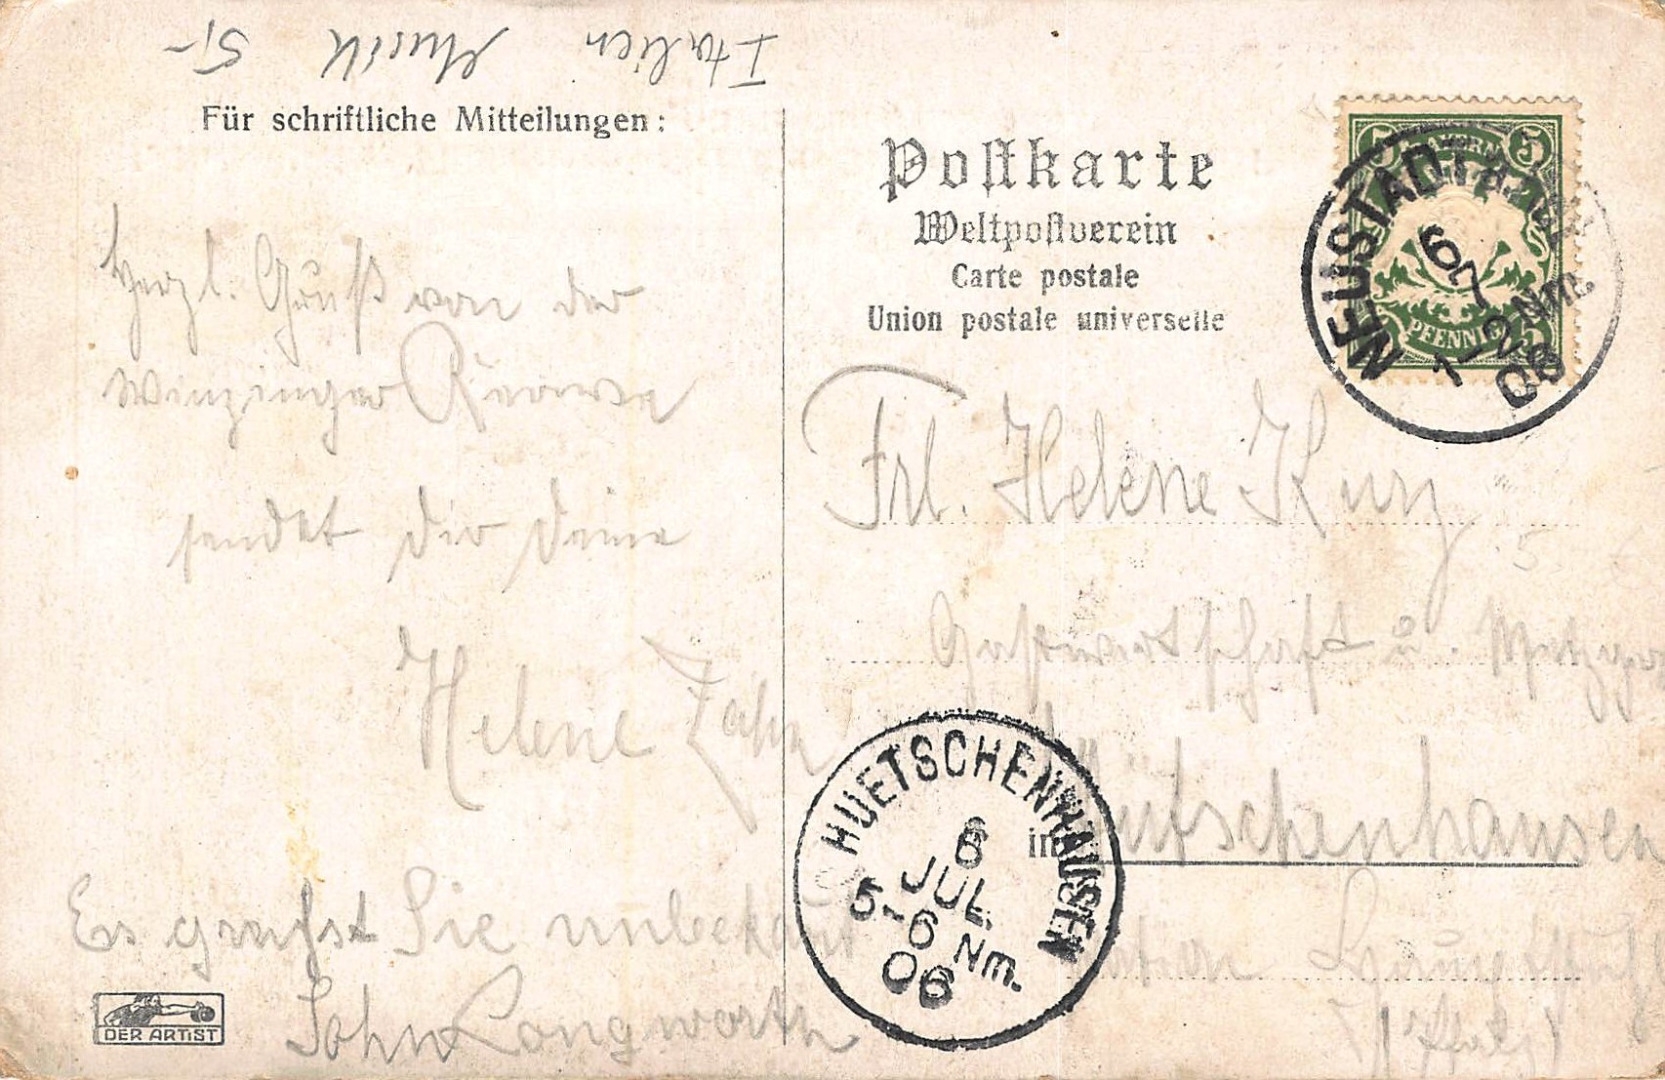 Italien Musik 5,-
Für schriftliche Mitteilungen:
Postkarte
Weltpostverein
Carte postale
Union postale universelle
BAYERN
5 5
PFENNIG
NEUSTADT
6 7
1-2 Nm
06
Herzl. Gruß von der
Winzinger
sendet dir deine
Helene Zahn
Es grüsst Sie unbekannt
John Longworth
Frl. Helene Kurz
Gastwirtschaft u. Metzgerei
in Hütschenhausen
(Pfalz)
HUETSCHENHAUSEN
6
JUL.
5-6 Nm.
06
DER ARTIST